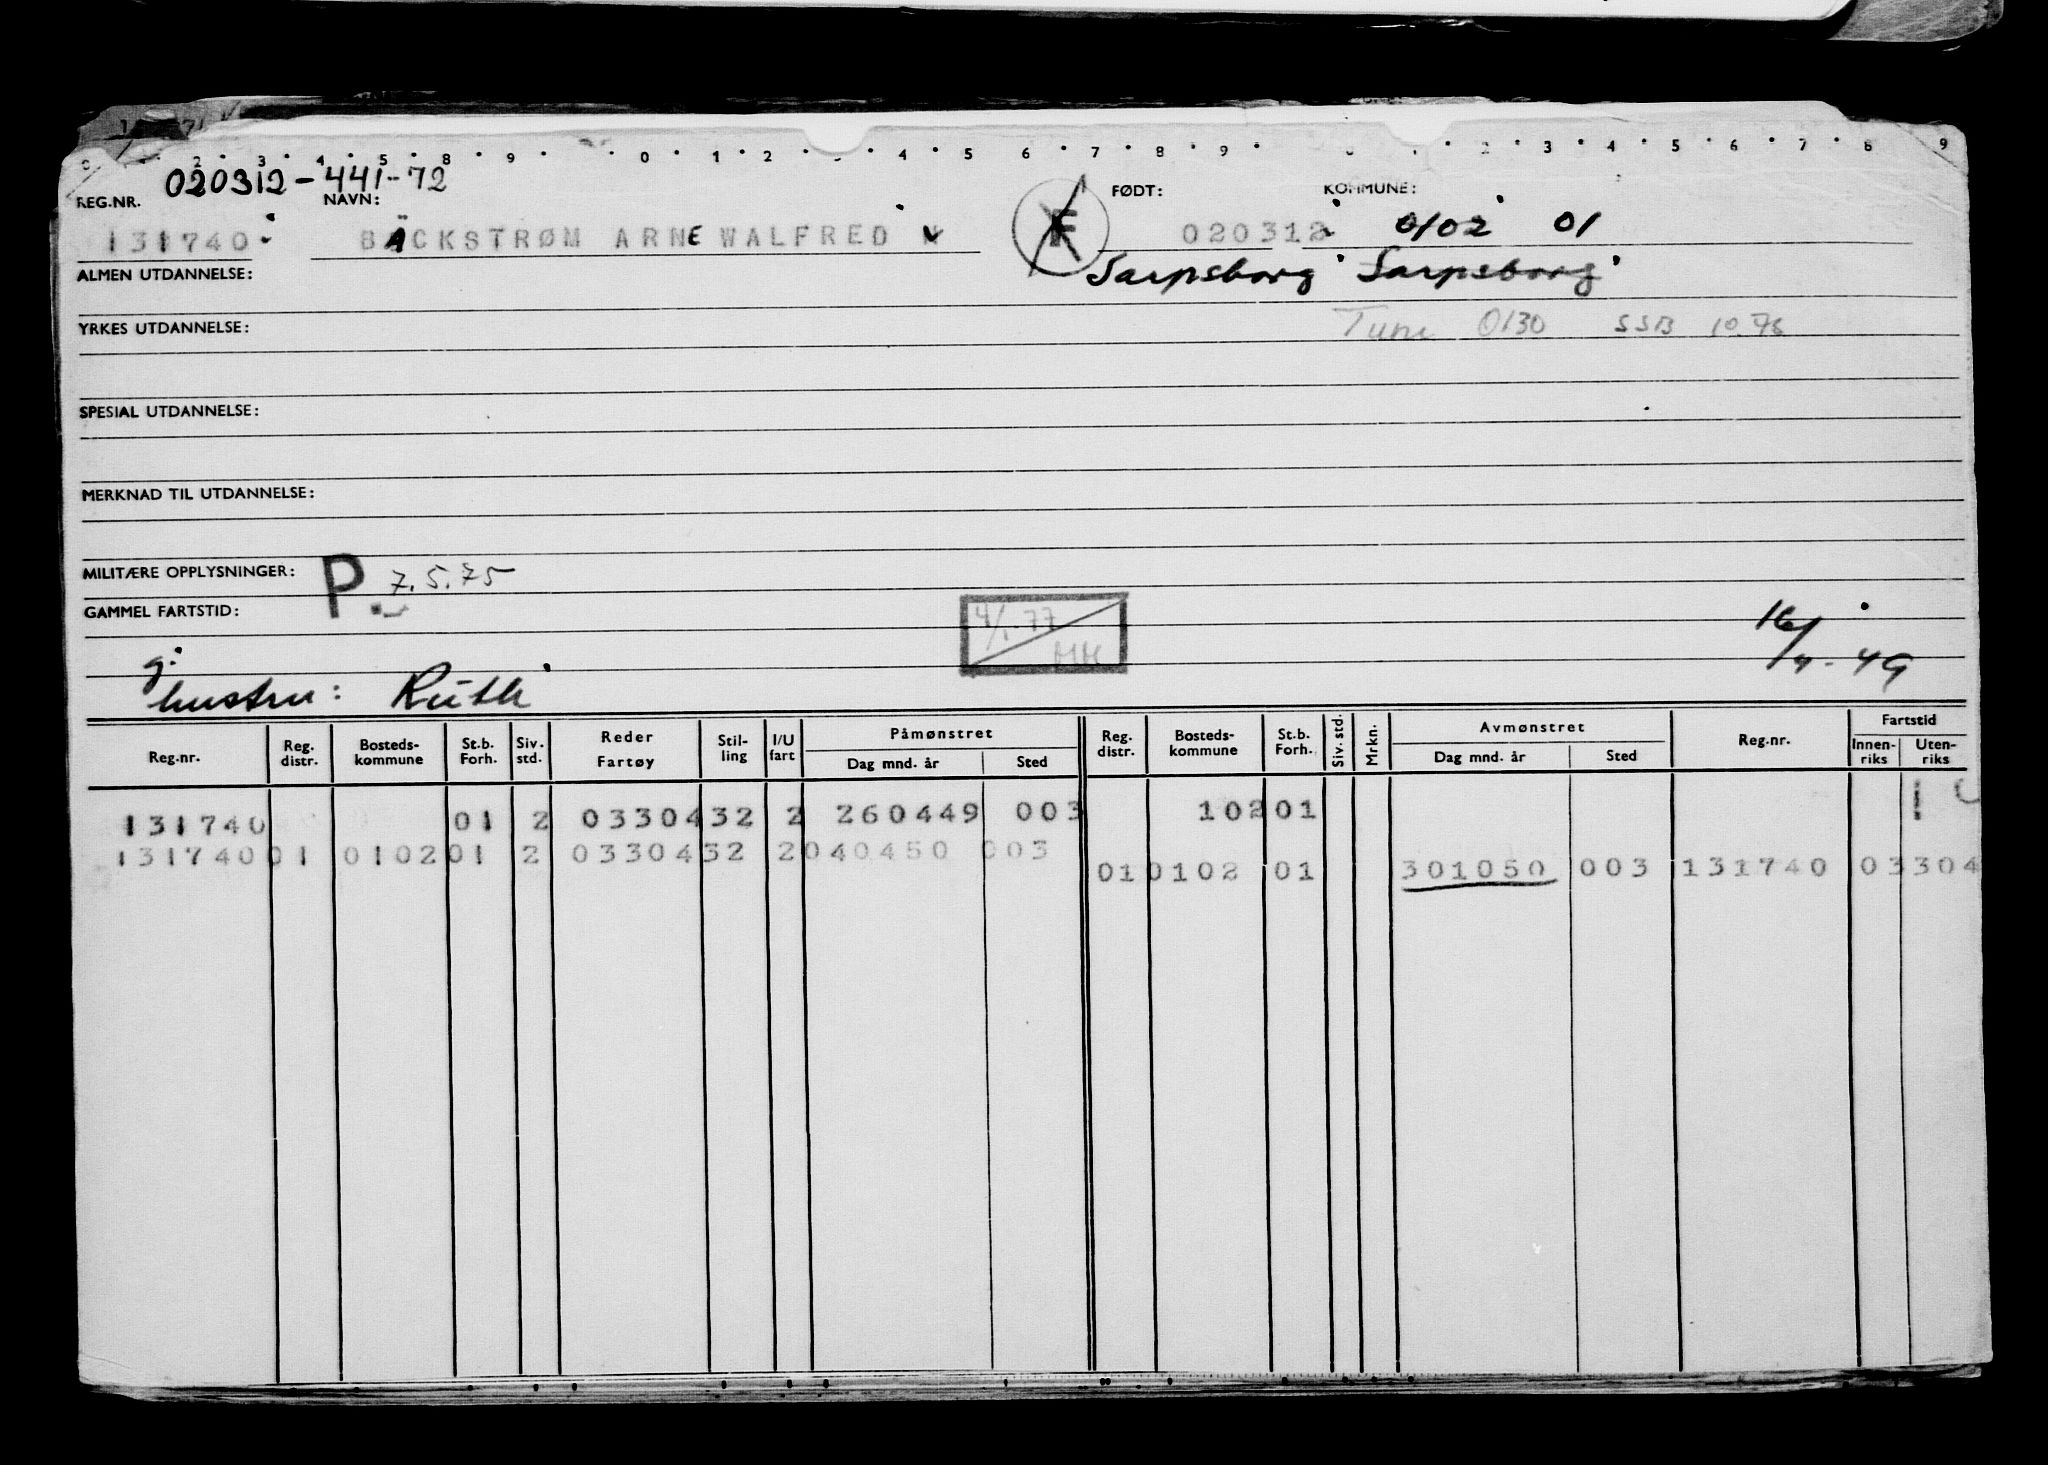 020312-441-72
REG.NR. NAVN: FØDT: KOMMUNE:
131740 BÄCKSTRØM ARNE WALFRED F 020312 0102 01
ALMEN UTDANNELSE: Sarpsborg Sarpsborg
YRKES UTDANNELSE: Tune 0130 SSB 10.76
SPESIAL UTDANNELSE:
MERKNAD TIL UTDANNELSE:
MILITÆRE OPPLYSNINGER: P. 7.5.75
GAMMEL FARTSTID: 4/1.77 16/4-49
MH
g.
hustru: Ruth
Reg.nr. Reg. distr. Bosteds-kommune St.b. Forh. Siv. std. Reder Fartøy Stil-ling I/U fart Påmønstret Dag mnd. år Sted Reg. distr. Bosteds-kommune St.b. Forh. Siv. std. Mrkn. Avmønstret Dag mnd. år Sted Reg.nr. Fartstid Innen-riks Uten-riks
131740 01 2 03304 32 2 260449 003 102 01
131740 01 0102 01 2 03304 32 2 040450 003
01 0102 01 301050 003 131740 03304